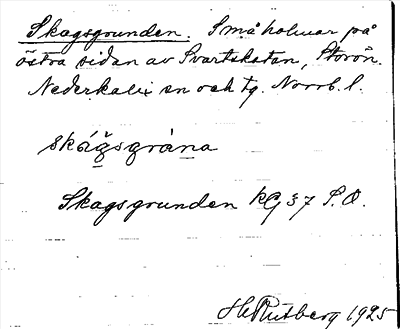 Skagsgrunden. Små holmar på
östra sidan av Svartskatan, Storön.
Nederkalix sn och tg. Norrb. l.
skág̬sgrána
Skagsgrunden kG 37 S.O.
H Rutberg 1925